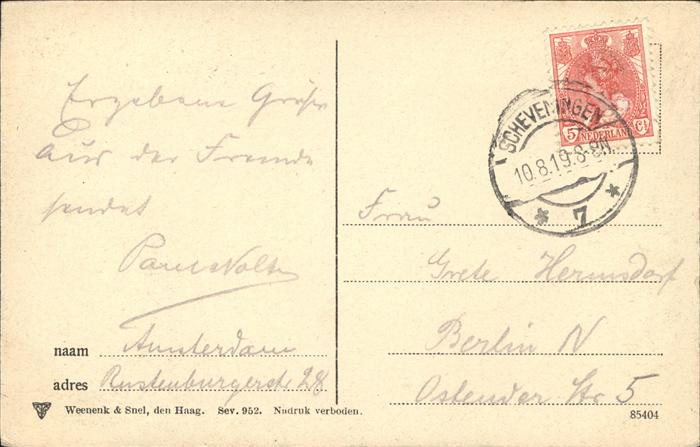 Ergebene Grüße
Aus der Fremde
sendet
Paul Nolte
naam Amsterdam
adres Rustenburgerstr 28
Weenenk & Snel, den Haag. Sev. 952. Nadruk verboden.
5 NEDERLAND Ct
SCHEVENINGEN
10.8.19.8-9N
* 7 *
Frau
Grete Hermsdorf
Berlin N
Ostender Str 5
85404